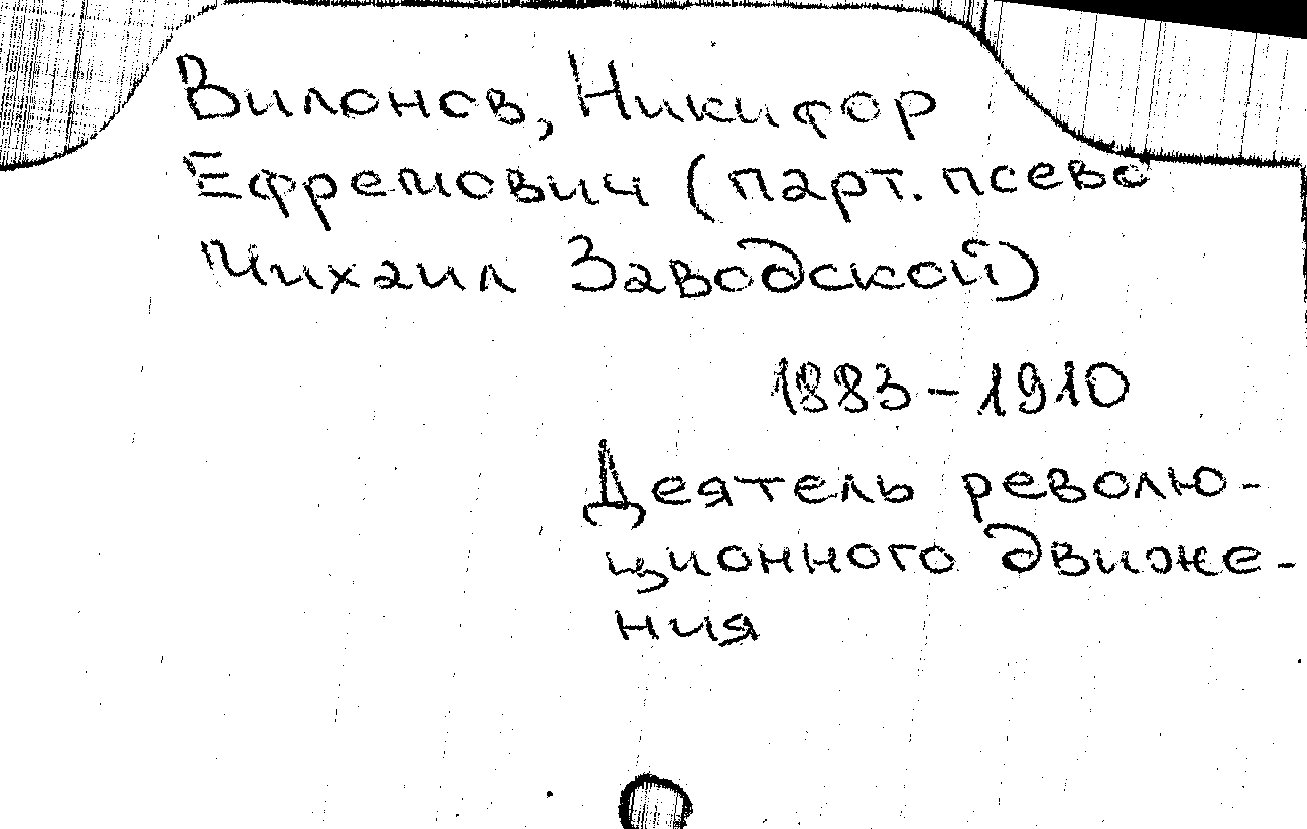 Вилонов, Никифор
Ефремович (парт. псевд
Михаил Заводской)
1883-1910
Деятель револю-
ционного движе-
ния